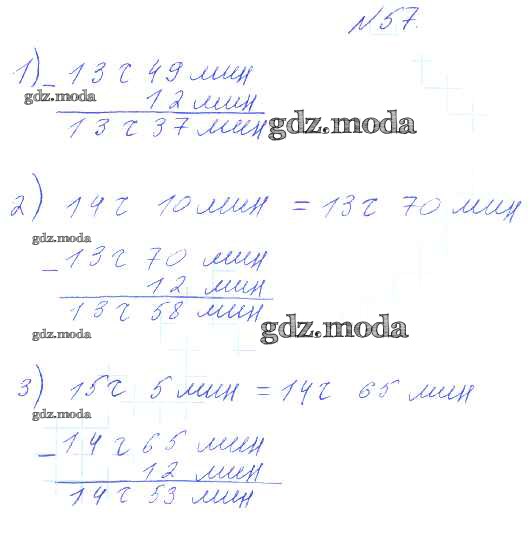 №57.
1) − 13 ч 49 мин
gdz.moda
12 мин
13 ч 37 мин
gdz.moda
2) 14 ч 10 мин = 13 ч 70 мин
gdz.moda
− 13 ч 70 мин
12 мин
13 ч 58 мин
gdz.moda
gdz.moda
3) 15 ч 5 мин = 14 ч 65 мин
gdz.moda
− 14 ч 65 мин
12 мин
14 ч 53 мин